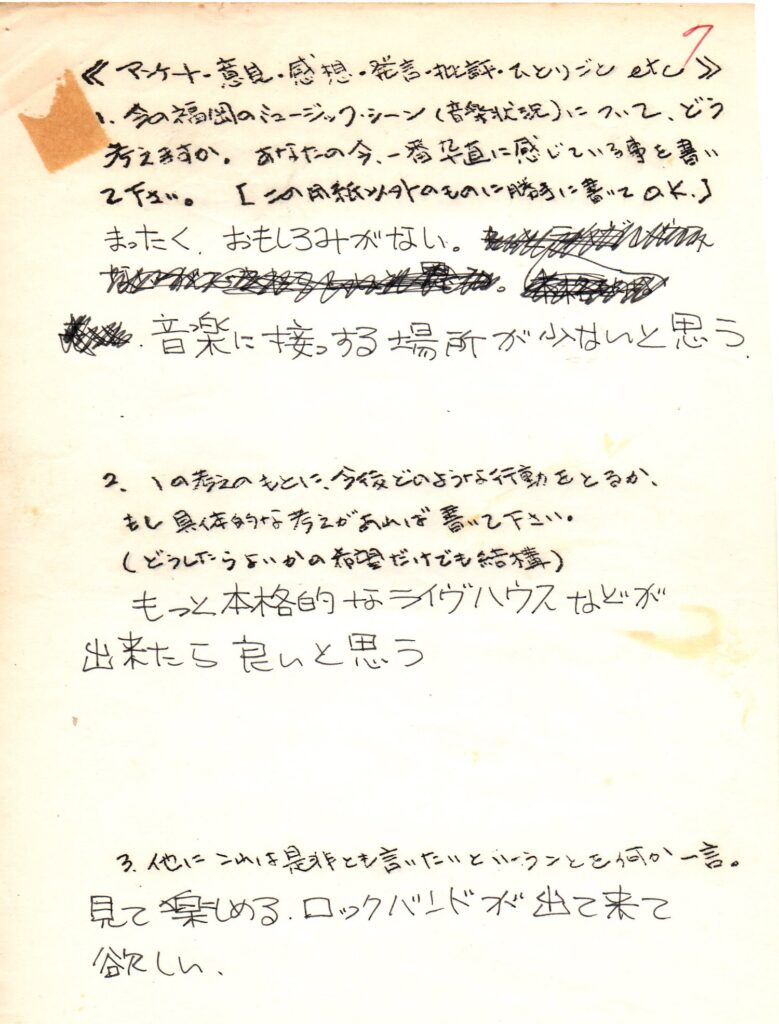 7
《アンケート・意見・感想・発言・批評・ひとりごと etc》
1. 今の福岡のミュージック・シーン(音楽状況)について、どう
考えますか。あなたの今、一番卒直に感じている事を書い
て下さい。[この用紙以外のものに勝手に書いてOK.]
まったく、おもしろみがない。
音楽に接っする場所が少ないと思う.
2. 1の考えのもとに、今後どのような行動をとるか、
もし具体的な考えがあれば書いて下さい。
(どうしたらよいかの希望だけでも結構)
もっと本格的なライヴハウスなどが
出来たら良いと思う
3. 他にこれは是非とも言いたいということを何か一言。
見て楽しめる.ロックバンドが出て来て
欲しい、